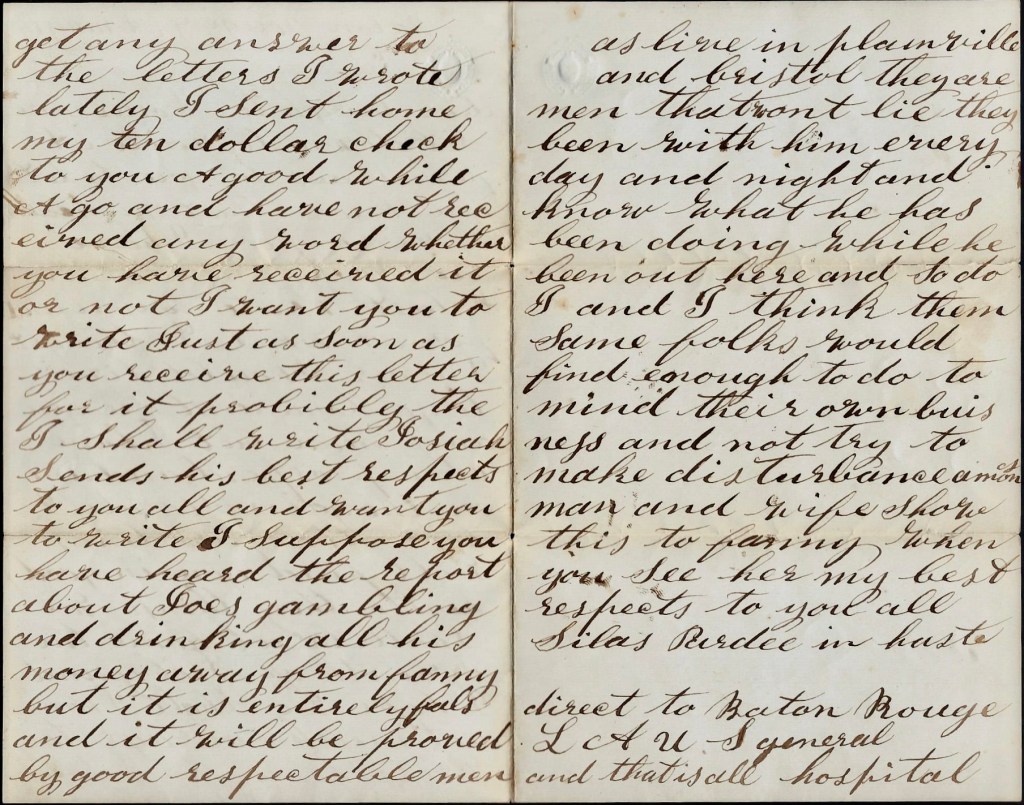 get any answer to
the letters I wrote
lately I Sent home
my ten dollar check
to you A good while
A go and have not rec
eived any word whether
you have received it
or not I want you to
write Just as Soon as
you receive this letter
for it probibly the
I Shall write Josiah
Sends his best respects
to you all and want you
to write I Suppose you
have heard the report
about Joes gambling
and drinking all his
money away from fanny
but it is entirely fals
and it will be proved
by good respectable men
as live in plainville
and bristol they are
men that wont lie they
been with him every
day and night and
know what he has
been doing while he
been out here and So do
I and I think them
Same folks would
find enough to do to
mind their own buis
ness and not try to
make disturbance amon
man and wife Show
this to fanny when
you See her my best
respects to you all
Silas Purdee in haste
direct to Baton Rouge
L A U S general
and that is all hospital